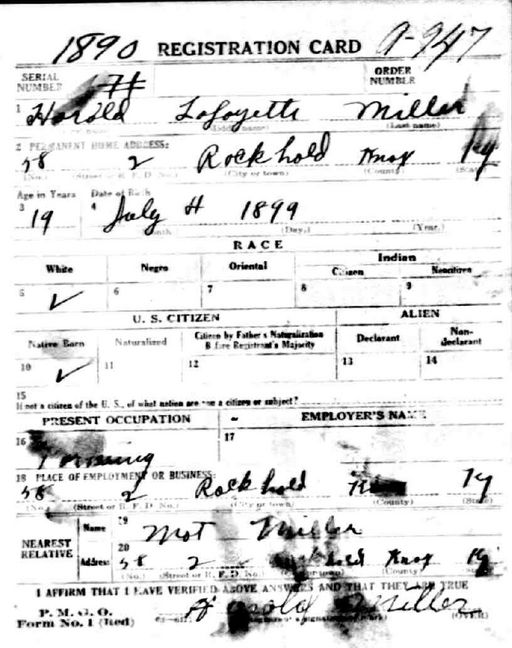 1890 REGISTRATION CARD A-947
SERIAL NUMBER ORDER NUMBER
1 Harold Lafayette Miller
(Middle name) (Last name)
2 PERMANENT HOME ADDRESS:
58 2 Rockhold Knox Ky
(No.) (Street or R. F. D. No.) (City or town) (County) (State)
Age in Years Date of Birth
3 19 4 July 4 1899
(Day.) (Year.)
RACE
White Negro Oriental Indian
Citizen Noncitizen
5 ✓ 6 7 8 9
U. S. CITIZEN ALIEN
Native Born Naturalized Citizen by Father's Naturalization Before Registrant's Majority Declarant Non-declarant
10 ✓ 11 12 13 14
15
If not a citizen of the U. S., of what nation are you a citizen or subject?
PRESENT OCCUPATION EMPLOYER'S NAME
16 Farming 17
18 PLACE OF EMPLOYMENT OR BUSINESS:
58 2 Rockhold Ky
(No.) (Street or R. F. D. No.) (City or town) (County) (State)
NEAREST RELATIVE
Name 19 Mot Miller
Address 20 58 2 Knox Ky
(No.) (Street or R. F. D. No.) (County) (State)
I AFFIRM THAT I HAVE VERIFIED ABOVE ANSWERS AND THAT THEY ARE TRUE
P. M. G. O.
Form No. 1 (Red) Harold Miller
(OVER)